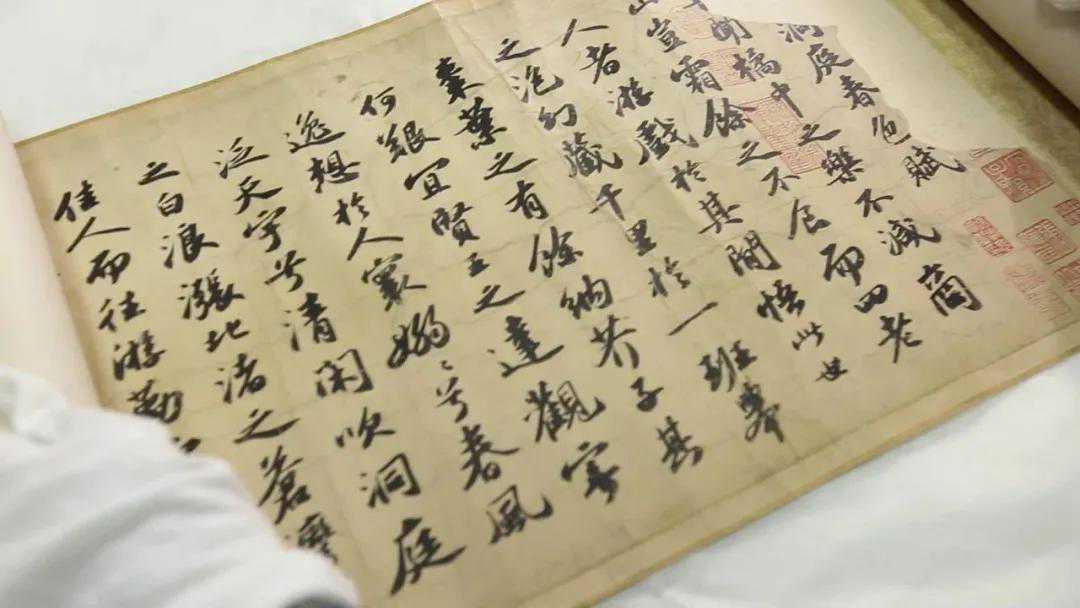 洞庭春色賦
橘中之樂不減商
山豈霜餘之不食而四老
人者游戲於其間悟此世
之泡幻藏千里於一班舉
棗葉之有餘納芥子其
何艱宜賢王之達觀寄
逸想於人寰嫋〻兮春風
泛天宇兮清閑吹洞庭
之白浪漲北渚之蒼灣
佳人而往游勤